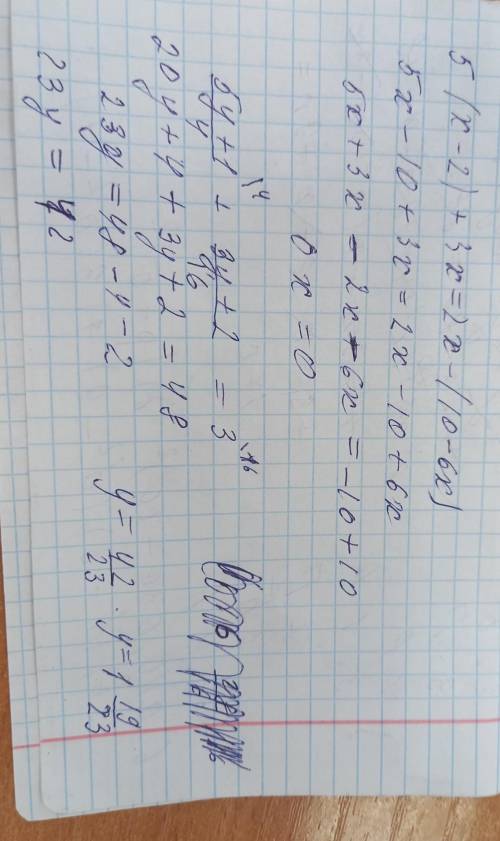 5(x-2)+3x=2x-(10-6x)
5x-10+3x=2x-10+6x
5x+3x-2x-6x=-10+10
0x=0
5y+1/4 \4 + 3y+2/16 = 3 \16
20y+4+3y+2=48
23y=48-4-2
23y=42
y=42/23. y=1 19/23